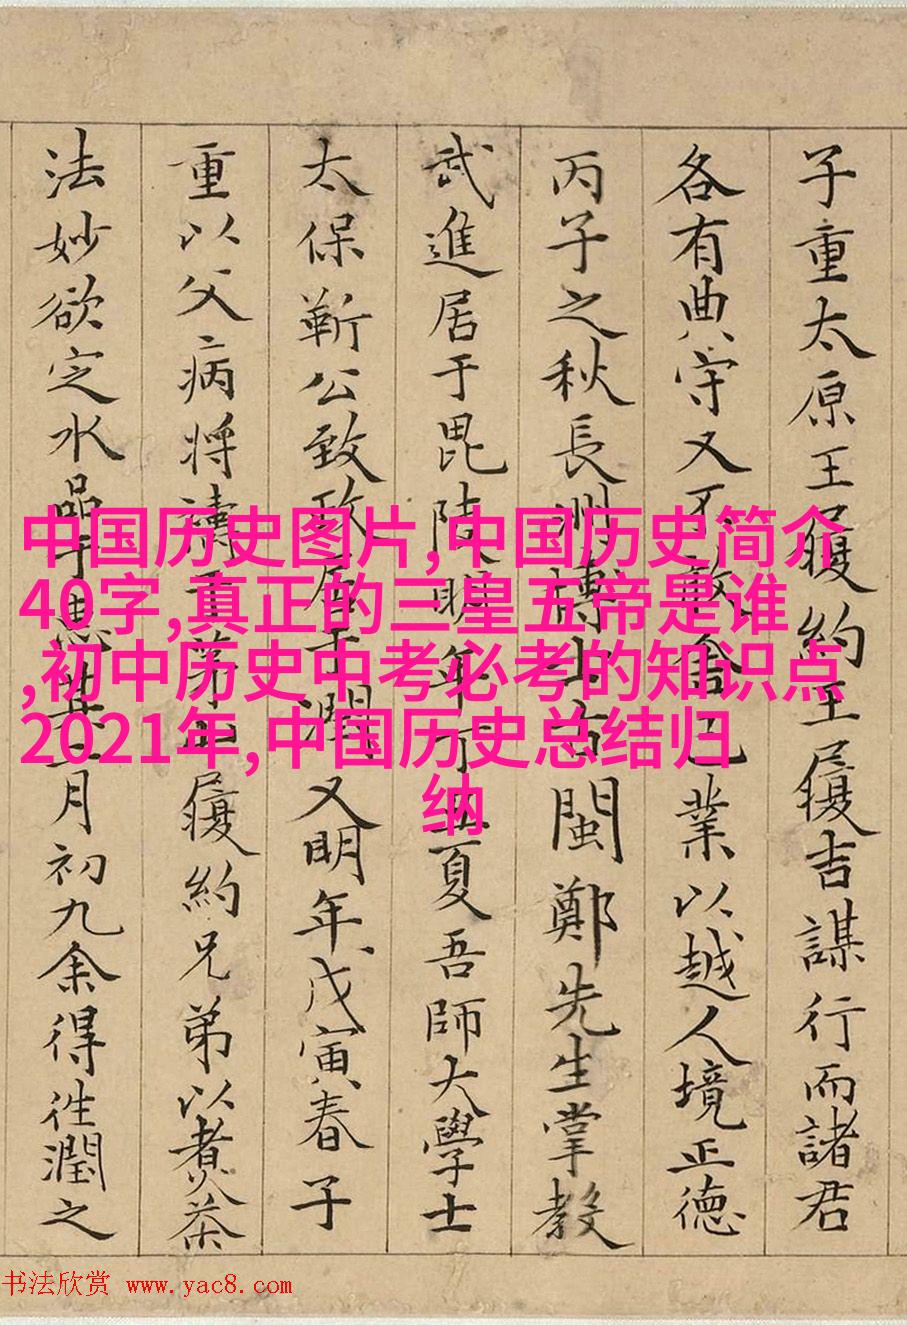 子重太原王履約王履吉謀行而諸君
各有典守又不敢舍己業以越人境正德
丙子之秋長洲博士古閩鄭先生掌教
武進居于毘陵明年丁丑夏吾師大學士
太保靳公致政居于潤又明年戊寅春子
重以父病將禱于茅履約兄弟以煑茶
法妙欲定水品于惠月初九余得往潤之
中国历史图片,中国历史简介
40字,真正的三皇五帝是谁
,初中历史中考必考的知识点
2021年,中国历史总结归
纳
书法欣赏 www.yac8.com